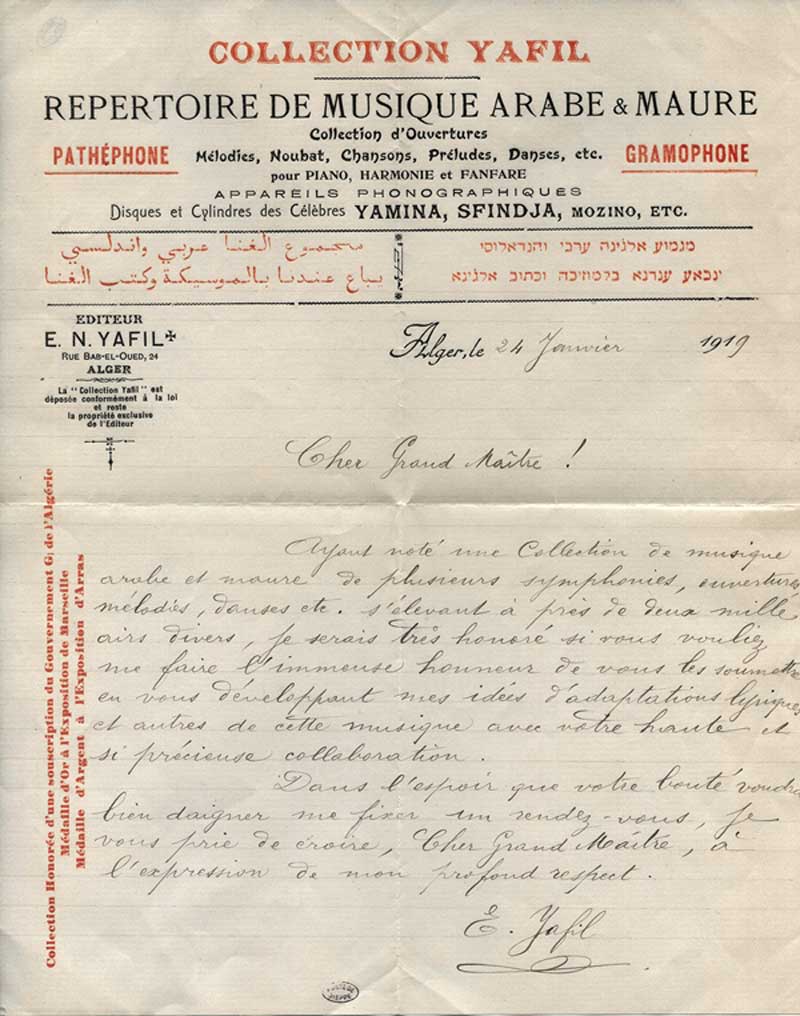 COLLECTION YAFIL
REPERTOIRE DE MUSIQUE ARABE & MAURE
Collection d'Ouvertures
PATHÉPHONE
Mélodies, Noubat, Chansons, Préludes, Danses, etc.
GRAMOPHONE
pour PIANO, HARMONIE et FANFARE
APPAREILS PHONOGRAPHIQUES
Disques et Cylindres des Célèbres YAMINA, SFINDJA, MOZINO, ETC.
مجموع الغنا عربي واندلسي
يباع عندنا بالموسيكة وكتب الغنا
מגמוע אלגינה ערבי והנדאלוסי
ינבאע ענדנא בלמוזיכה וכתוב אלגינא
EDITEUR
E. N. YAFIL
RUE BAB-EL-OUED, 24
ALGER
La "Collection Yafil" est
déposée conformément à la loi
et reste
la propriété exclusive
de l'Editeur
Alger, le 24 Janvier 1919
Cher Grand Maître !
Ayant noté une Collection de musique
arabe et maure de plusieurs symphonies, ouvertures
mélodies, danses etc. s'élevant à près de deux mille
airs divers, je serais très honoré si vous vouliez
me faire l'immense honneur de vous les soumettre
en vous développant mes idées d'adaptations lyriques
et autres de cette musique avec votre haute et
si précieuse collaboration.
Dans l'espoir que votre bonté voudra
bien daigner me fixer un rendez-vous, je
vous prie de croire, Cher Grand Maître, à
l'expression de mon profond respect.
E. Yafil
Collection Honorée d'une souscription du Gouvernement G. de l'Algérie
Médaille d'Or à l'Exposition de Marseille
Médaille d'Argent à l'Exposition d'Arras